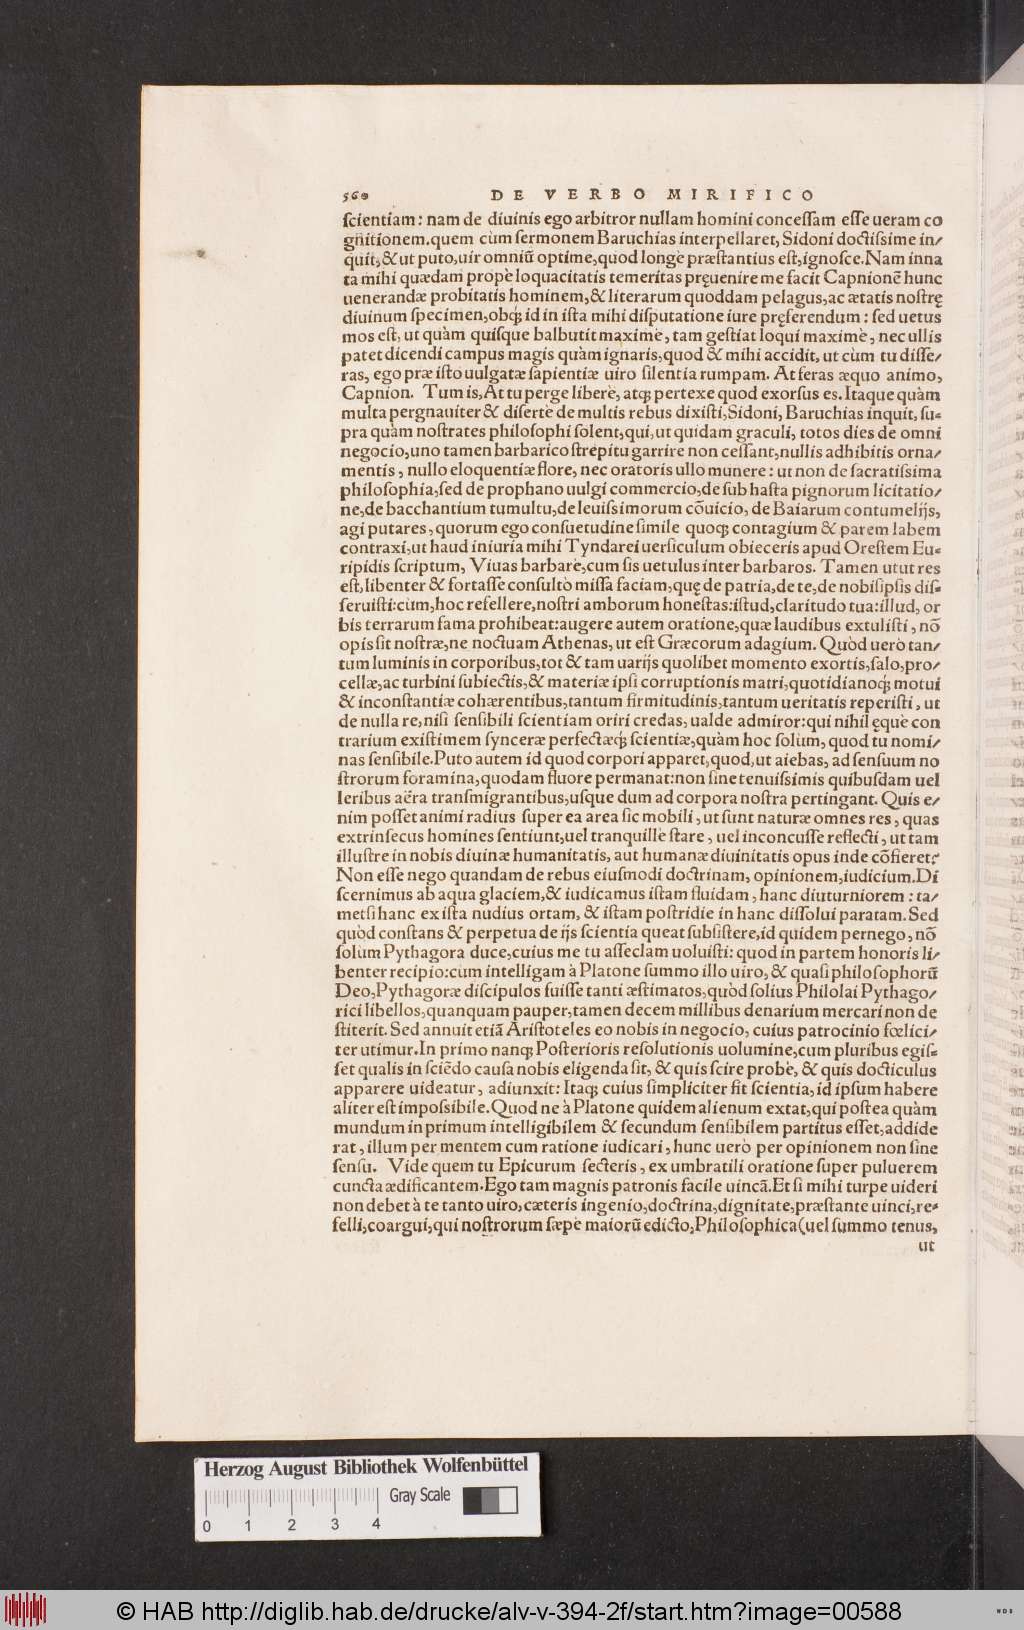 560 DE VERBO MIRIFICO
ſcientiam: nam de diuinis ego arbitror nullam homini conceſſam eſſe ueram co
gnitionem.quem cùm ſermonem Baruchias interpellaret, Sidoni doctiſsime in/
quit,&ut puto,uir omniũ optime,quod longè præſtantius eſt,ignoſce.Nam inna
ta mihi quædam propè loquacitatis temeritas pręuenire me facit Capnionẽ hunc
uenerandæ probitatis hominem,&literarum quoddam pelagus,ac ætatis noſtrę
diuinum ſpecimen,obq́; id in iſta mihi diſputatione iure pręferendum: ſed uetus
mos eſt, ut quàm quiſque balbutit maximè, tam geſtiat loqui maximè, nec ullis
patet dicendi campus magis quàm ignaris,quod & mihi accidit, ut cùm tu diſſe/
ras, ego præ iſto uulgatæ ſapientiæ uiro ſilentia rumpam. At feras æquo animo,
Capnion. Tum is,At tu perge liberè, atq; pertexe quod exorſus es. Itaque quàm
multa pergnauiter & diſertè de multis rebus dixiſti,Sidoni, Baruchias inquit, ſu-
pra quàm noſtrates philoſophi ſolent,qui,ut quidam graculi, totos dies de omni
negocio,uno tamen barbarico ſtrepitu garrire non ceſſant,nullis adhibitis orna/
mentis, nullo eloquentiæ flore, nec oratoris ullo munere: ut non de ſacratiſsima
philoſophia,ſed de prophano uulgi commercio,de ſub haſta pignorum licitatio/
ne,de bacchantium tumultu,de leuiſsimorum cõuicio, de Baiarum contumelijs,
agi putares, quorum ego conſuetudine ſimile quoq; contagium & parem labem
contraxi,ut haud iniuria mihi Tyndarei uerſiculum obieceris apud Oreſtem Eu-
ripidis ſcriptum, Viuas barbarè,cum ſis uetulus inter barbaros. Tamen utut res
eſt,libenter & fortaſſe conſultò miſſa faciam,quę de patria,de te,de nobiſipſis diſ-
ſeruiſti:cùm,hoc refellere,noſtri amborum honeſtas:iſtud,claritudo tua:illud, or
bis terrarum fama prohibeat:augere autem oratione,quæ laudibus extuliſti, nõ
opis ſit noſtræ,ne noctuam Athenas, ut eſt Græcorum adagium. Quòd uerò tan/
tum luminis in corporibus,tot & tam uarijs quolibet momento exortis,ſalo,pro/
cellæ,ac turbini ſubiectis,& materiæ ipſi corruptionis matri,quotidianoq́; motui
& inconſtantiæ cohærentibus,tantum firmitudinis,tantum ueritatis reperiſti, ut
de nulla re,niſi ſenſibili ſcientiam oriri credas, ualde admiror:qui nihil ęquè con
trarium exiſtimem ſynceræ perfectæq́; ſcientiæ,quàm hoc ſolùm, quod tu nomi/
nas ſenſibile.Puto autem id quod corpori apparet,quod,ut aiebas, ad ſenſuum no
ſtrorum foramina,quodam fluore permanat:non ſine tenuiſsimis quibuſdam uel
leribus aëra tranſmigrantibus,uſque dum ad corpora noſtra pertingant. Quis e/
nim poſſet animi radius ſuper ea area ſic mobili, ut ſunt naturæ omnes res, quas
extrinſecus homines ſentiunt,uel tranquillè ſtare, uel inconcuſſe reflecti, ut tam
illuſtre in nobis diuinæ humanitatis, aut humanæ diuinitatis opus inde cõfieret?
Non eſſe nego quandam de rebus eiuſmodi doctrinam, opinionem,iudicium.Di
ſcernimus ab aqua glaciem,& iudicamus iſtam fluidam, hanc diuturniorem: ta-
metſi hanc ex iſta nudius ortam, & iſtam poſtridie in hanc diſſolui paratam. Sed
quòd conſtans & perpetua de ijs ſcientia queat ſubſiſtere,id quidem pernego, nõ
ſolum Pythagora duce,cuius me tu aſſeclam uoluiſti: quod in partem honoris li/
benter recipio:cùm intelligam à Platone ſummo illo uiro, & quaſi philoſophorũ
Deo,Pythagoræ diſcipulos fuiſſe tanti æſtimatos,quòd ſolius Philolai Pythago/
rici libellos,quanquam pauper,tamen decem millibus denarium mercari non de
ſtiterit. Sed annuit etiã Ariſtoteles eo nobis in negocio, cuius patrocinio fœlici/
ter utimur.In primo nanq; Poſterioris reſolutionis uolumine,cum pluribus egiſ-
ſet qualis in ſciẽdo cauſa nobis eligenda ſit, & quis ſcire probè, & quis docticulus
apparere uideatur, adiunxit: Itaq; cuius ſimpliciter fit ſcientia, id ipſum habere
aliter eſt impoſsibile.Quod ne à Platone quidem alienum extat,qui poſtea quàm
mundum in primum intelligibilem & ſecundum ſenſibilem partitus eſſet,addide
rat, illum per mentem cum ratione iudicari, hunc uerò per opinionem non ſine
ſenſu. Vide quem tu Epicurum ſecteris, ex umbratili oratione ſuper puluerem
cuncta ædificantem.Ego tam magnis patronis facile uincã.Et ſi mihi turpe uideri
non debet à te tanto uiro,cæteris ingenio,doctrina,dignitate,præſtante uinci,re-
felli,coargui,qui noſtrorum ſæpè maiorũ edicto,Philoſophica(uel ſummo tenus,
ut
Herzog August Bibliothek Wolfenbüttel
Gray Scale
0 1 2 3 4
© HAB http://diglib.hab.de/drucke/alv-v-394-2f/start.htm?image=00588